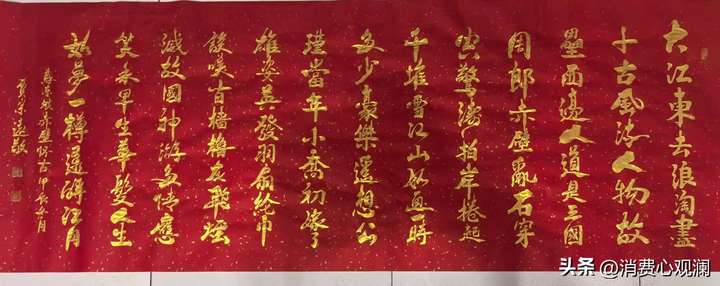 大江東去浪淘盡
千古風流人物故
壘西邊人道是三國
周郎赤壁亂石穿
空驚濤拍岸捲起
千堆雪江山如畫一時
多少豪傑遙想公
瑾當年小喬初嫁了
雄姿英發羽扇綸巾
談笑間檣櫓灰飛煙
滅故國神游多情應
笑我早生華髮人生
如夢一樽還酹江月
赤壁懷古甲辰
头条 @消费心观澜